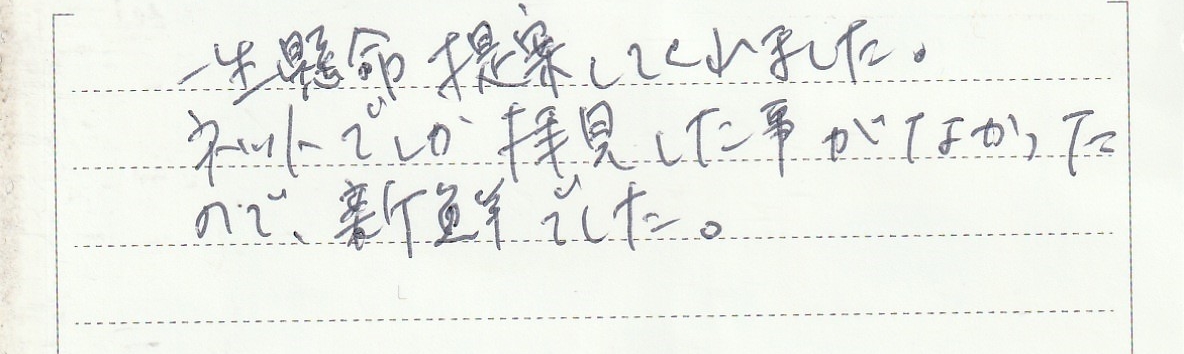 一生懸命提案してくれました。
ネットでしか拝見した事がなかった
ので、新鮮でした。